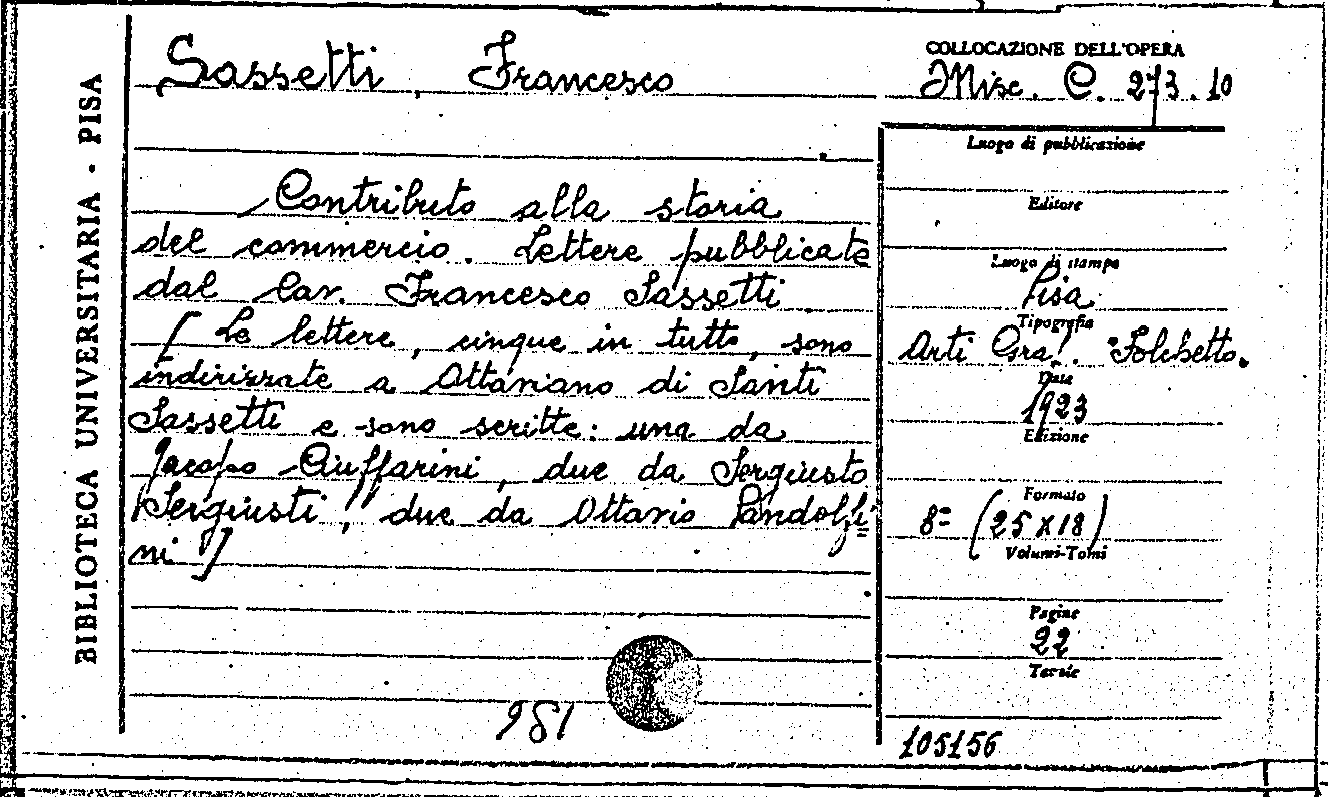 BIBLIOTECA UNIVERSITARIA - PISA
Sassetti, Francesco
Contributo alla storia
del commercio. Lettere pubblicate
dal Cav. Francesco Sassetti
[Le lettere, cinque in tutto, sono
indirizzate a Ottaviano di Santi
Sassetti e sono scritte: una da
Jacopo Ciuffarini, due da Sergiusto
Sergiusti, due da Ottavio Pandolfi=
ni]
981
COLLOCAZIONE DELL'OPERA
Misc. C. 273.10
Luogo di pubblicazione
Editore
Luogo di stampa
Pisa
Tipografia
Arti Graf. "Folchetto.
Data
1923
Edizione
Formato
8º (25 x 18)
Volumi-Tomi
Pagine
22
Tavole
105156